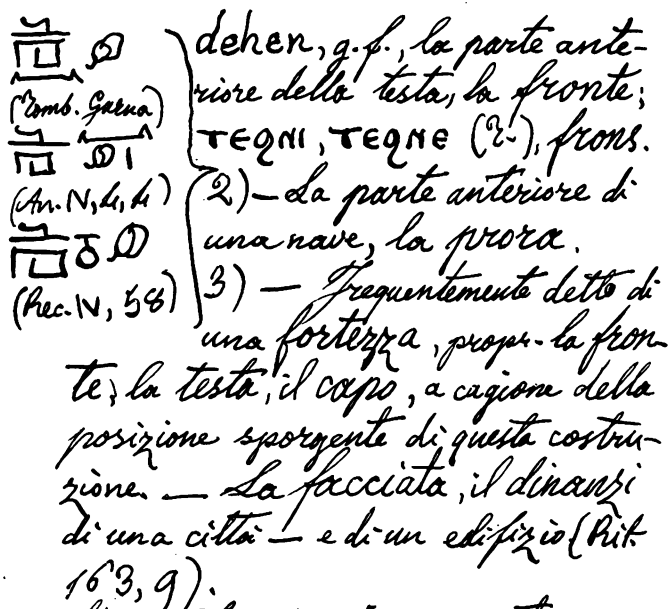 dehen, g. f., la parte ante-
riore della testa, la fronte;
ⲧⲉϩⲛⲓ, ⲧⲉϩⲛⲉ (ⲧ-), frons.
2) — La parte anteriore di
una nave, la prora.
3) — Frequentemente detto di
una fortezza, propr. la fron
te, la testa, il capo, a cagione della
posizione sporgente di questa costru-
zione. — La facciata, il dinanzi
di una città — e di un edifizio (Rit.
163, 9).
(Tomb. Gurna)
(An. IV, 4, 4)
(Rec. IV, 58)